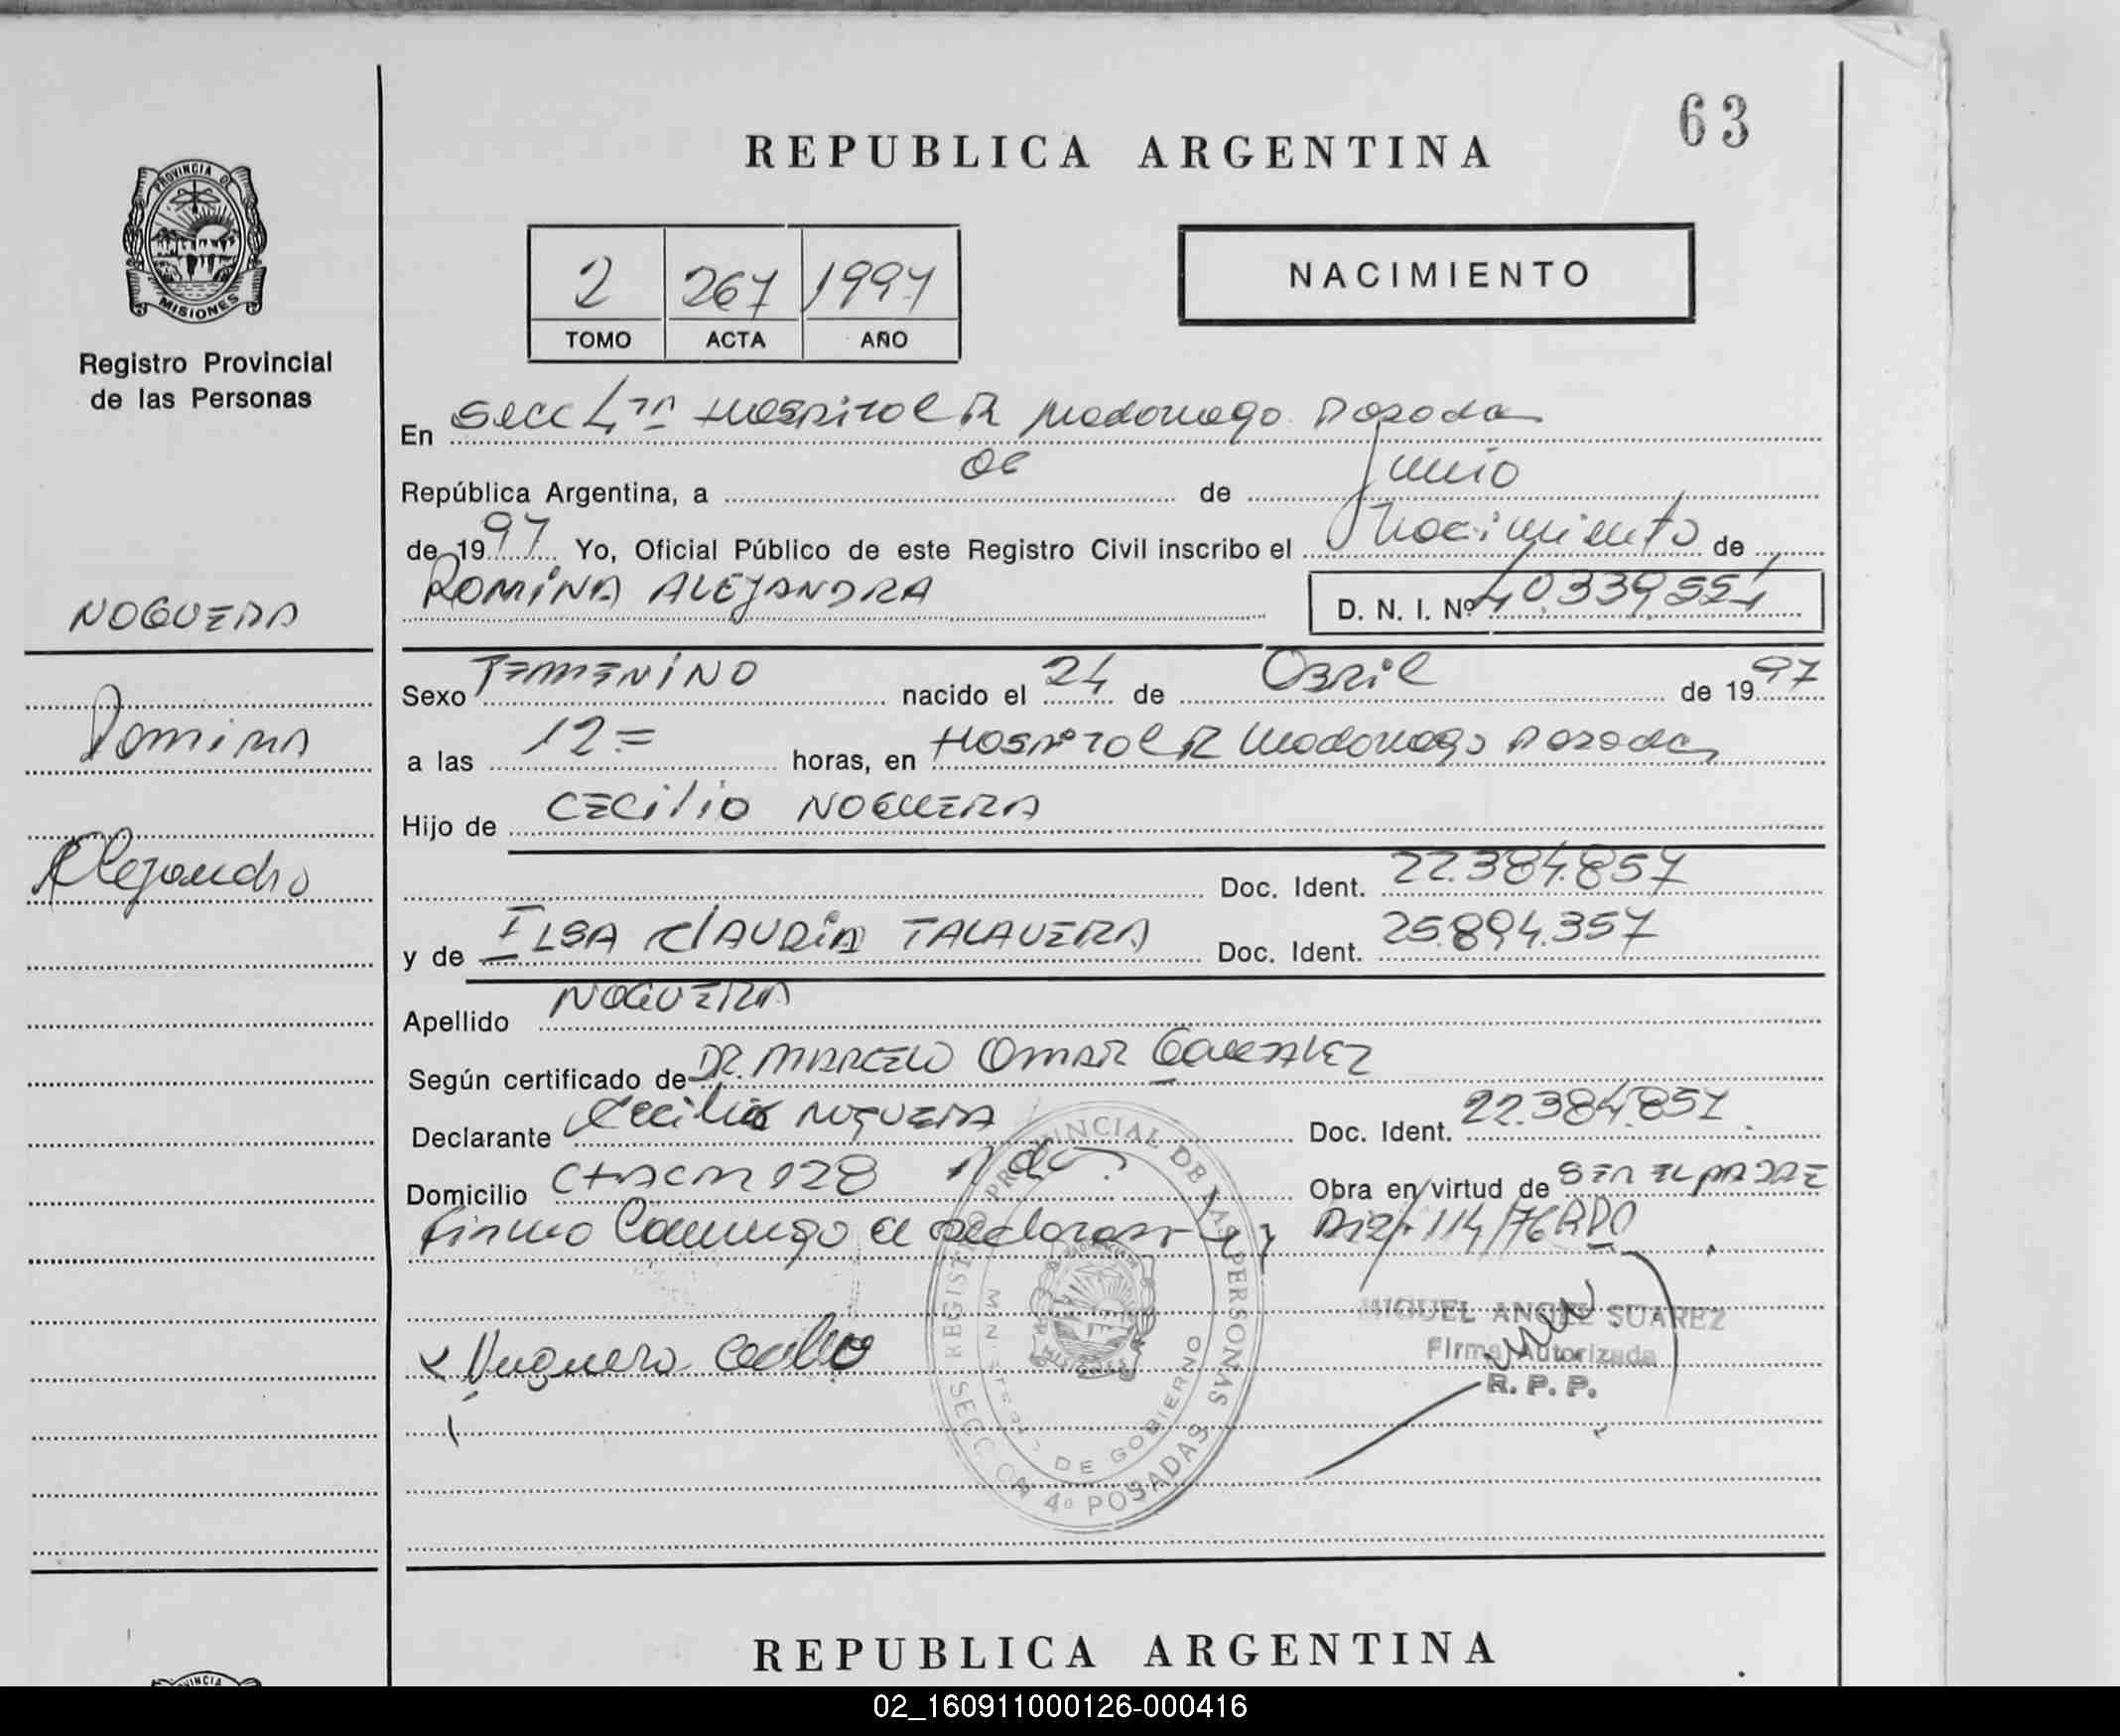 63
REPUBLICA ARGENTINA
PROVINCIA DE
MISIONES
Registro Provincial
de las Personas
2 267 1997
TOMO ACTA AÑO
NACIMIENTO
En Secc 4ta Hospital R Madariaga Posadas
República Argentina, a de Junio
de 1997 Yo, Oficial Público de este Registro Civil inscribo el Nacimiento de
ROMINA ALEJANDRA D. N. I. Nº 40.339.551
NOGUERA
Romina
Alejandra
Sexo FEMENINO nacido el 24 de Abril de 1997
a las 12= horas, en Hospital R Madariaga Posadas
Hijo de CECILIO NOGUERA
Doc. Ident. 22.384.857
y de ILSA CLAUDIA TALAVERA Doc. Ident. 25.894.357
Apellido NOGUERA
Según certificado de DR. MARCELO OMAR GONZALEZ
Declarante Cecilio NOGUERA Doc. Ident. 22.384.857
Domicilio CHACRA 128 Pdas. Obra en virtud de SER EL PADRE
Firma Conmigo el declarante Disp. 114/76 RPP
Noguera Cecilio
REGISTRO PROVINCIAL DE LAS PERSONAS
MINISTERIO DE GOBIERNO
SECCION 4º POSADAS
MIGUEL ANGEL SUAREZ
Firma Autorizada
R. P. P.
REPUBLICA ARGENTINA
VINCIA
02_160911000126-000416